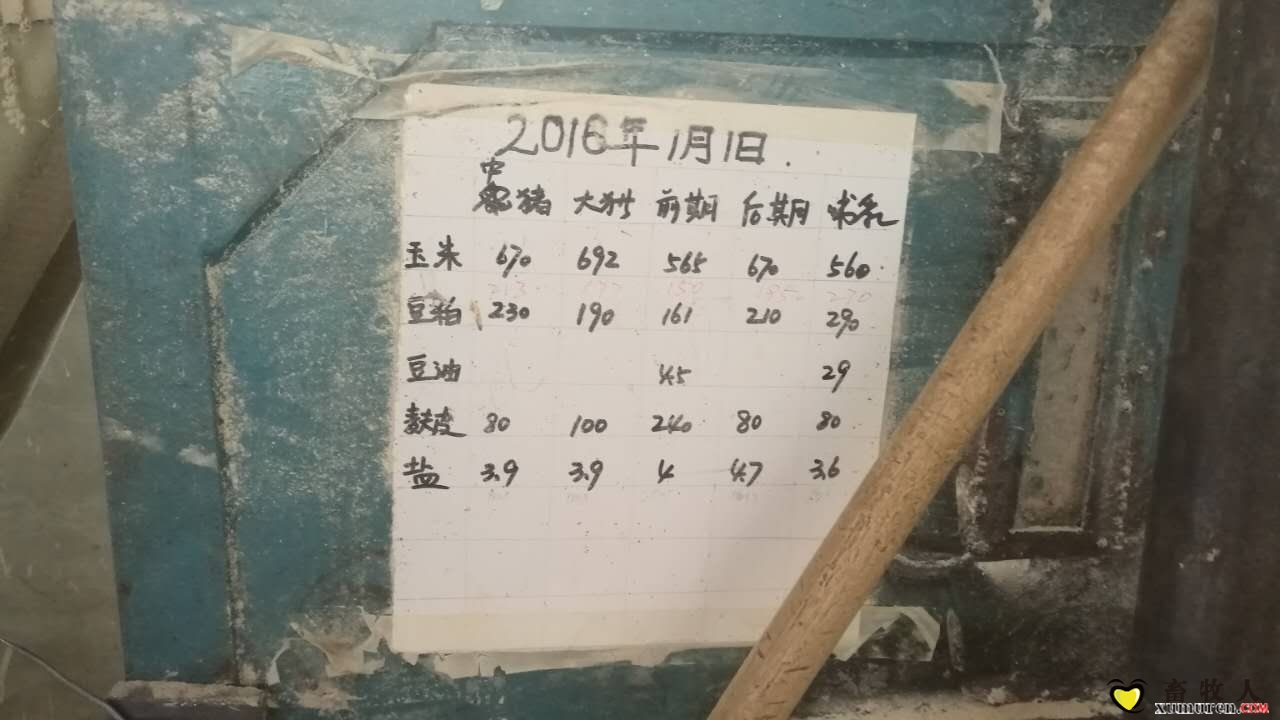 2016年1月1日.
中
猪 大猪 前期 后期 哺乳
玉米 670 692 565 670 560
213 177 150 185 270
豆粕 230 190 161 210 290
豆油 45 29
麸皮 80 100 240 80 80
盐 3.9 3.9 4 4.7 3.6
畜牧人
xumuren.COM